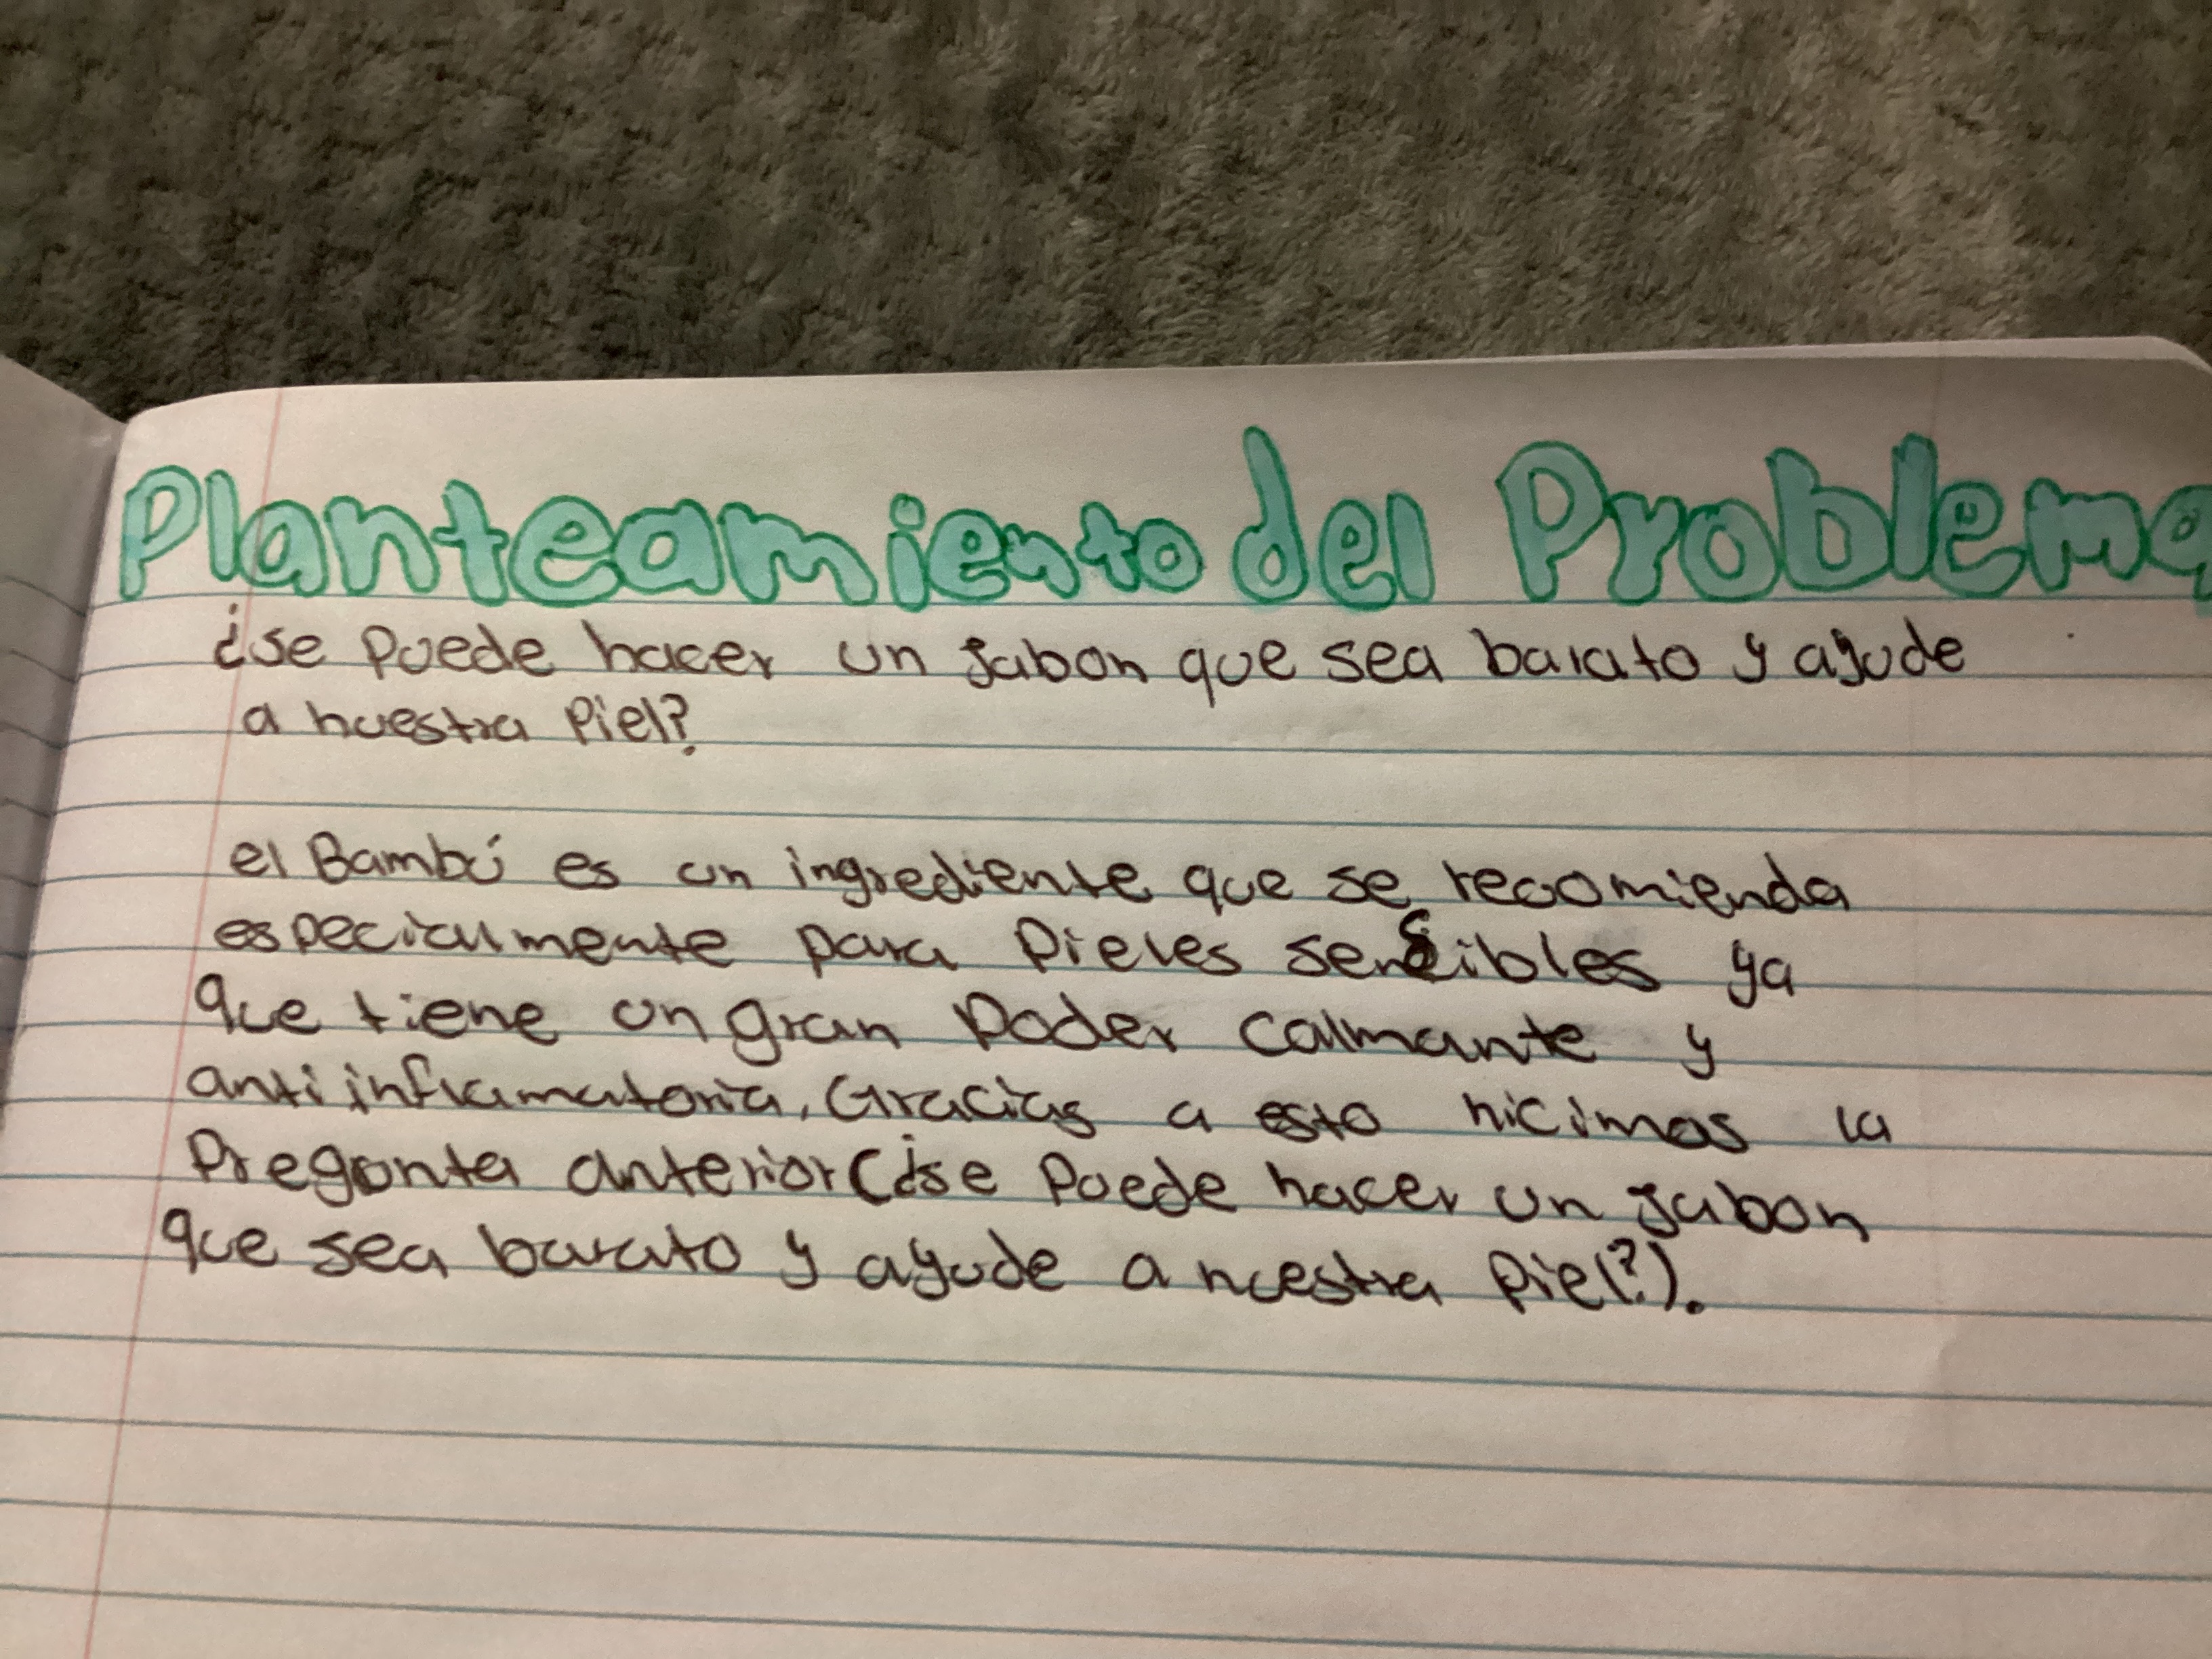 Planteamiento del Problema
¿se puede hacer un jabon que sea barato y ayude
a nuestra Piel?
el Bambú es un ingrediente que se recomienda
especialmente para Pieles sensibles ya
que tiene un gran poder calmante y
antiinflamatoria. Gracias a esto hicimos la
Pregunta anterior (¿se Puede hacer un jabon
que sea barato y ayude a nuestra Piel?).